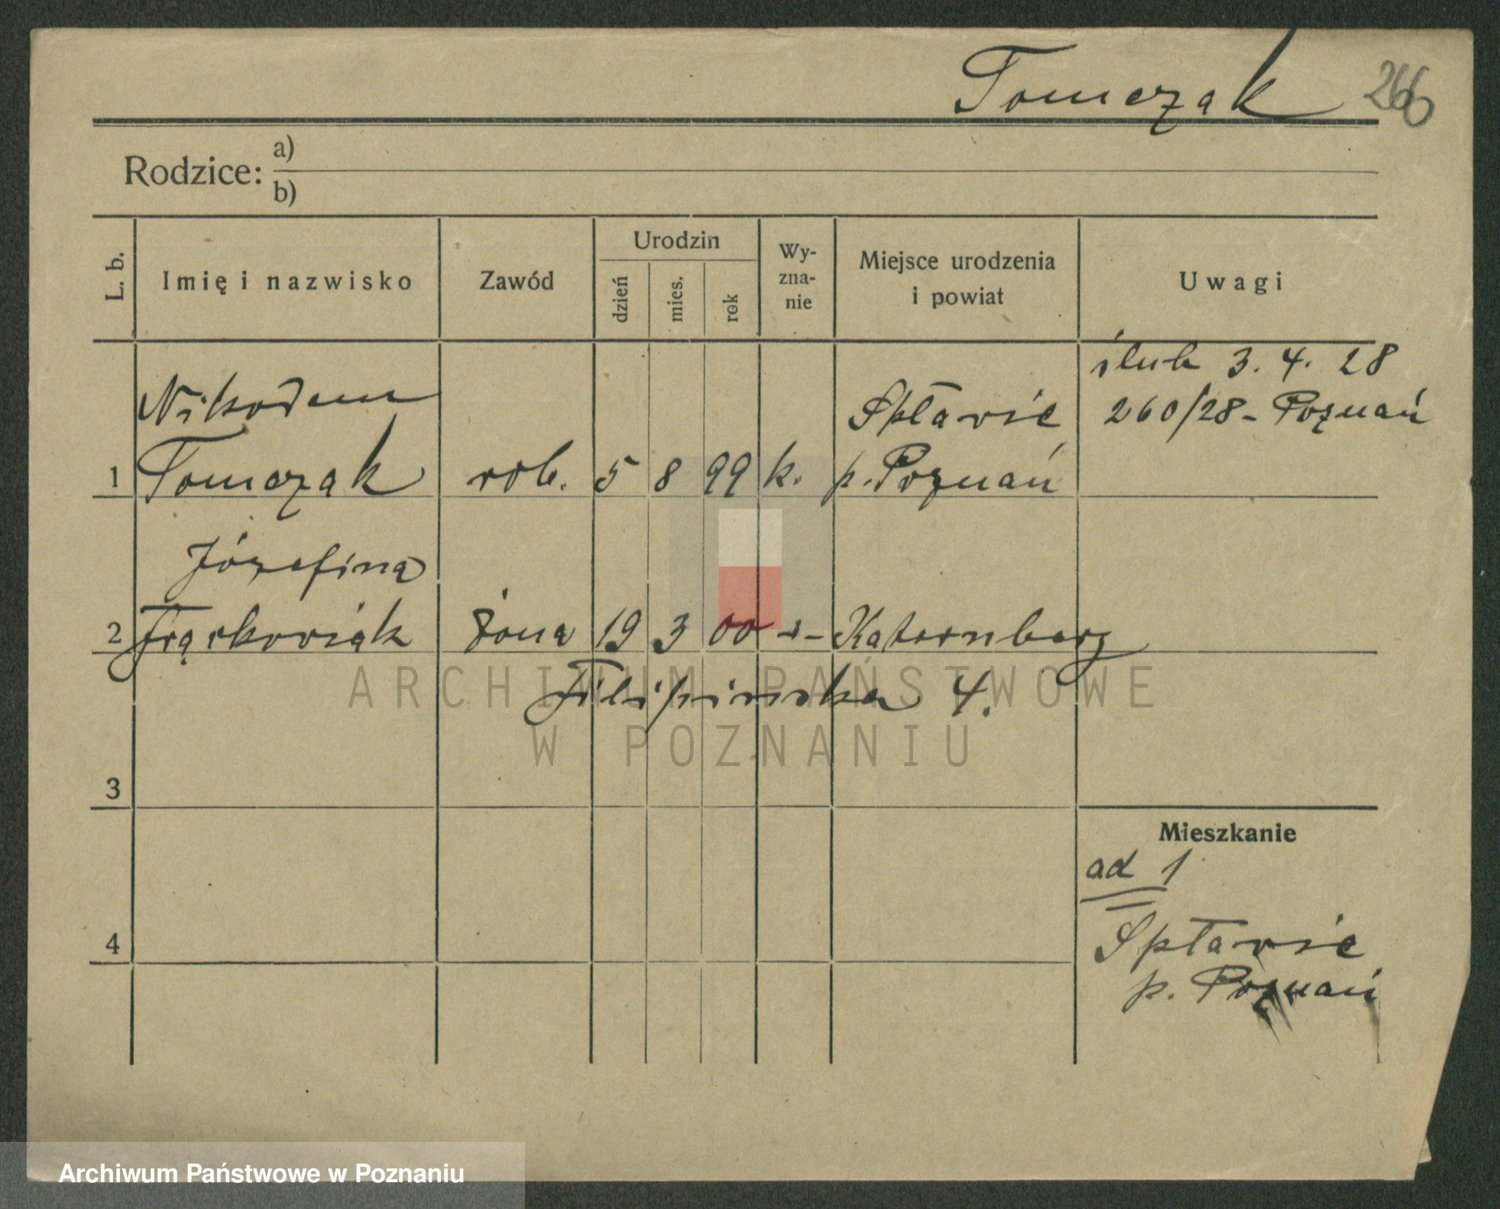 Tomczak 266
Rodzice: a)
b)
L. b.
Imię i nazwisko
Zawód
Urodzin
dzień
mies.
rok
Wy-
zna-
nie
Miejsce urodzenia
i powiat
Uwagi
ślub 3. 4. 28
260/28 - Poznań
Nikodem
1 Tomczak rob. 5 8 99 k.
Spławie
p. Poznań
Józefina
2 Frąckowiak żona 19 3 00 -"- Katernberg
Filipińska 4.
3
4
Mieszkanie
ad 1
Spławie
p. Poznań
ARCHIWUM PAŃSTWOWE
W POZNANIU
Archiwum Państwowe w Poznaniu